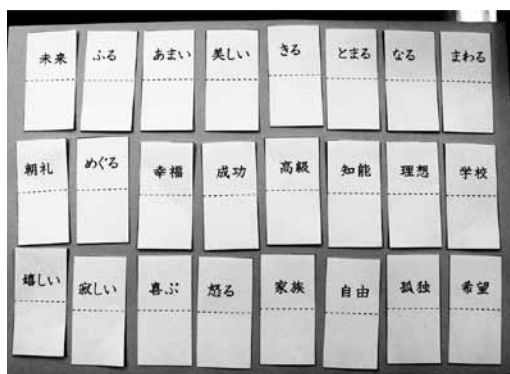 未来 ふる あまい 美しい きる とまる なる まわる
朝礼 めぐる 幸福 成功 高級 知能 理想 学校
嬉しい 寂しい 喜ぶ 怒る 家族 自由 孤独 希望